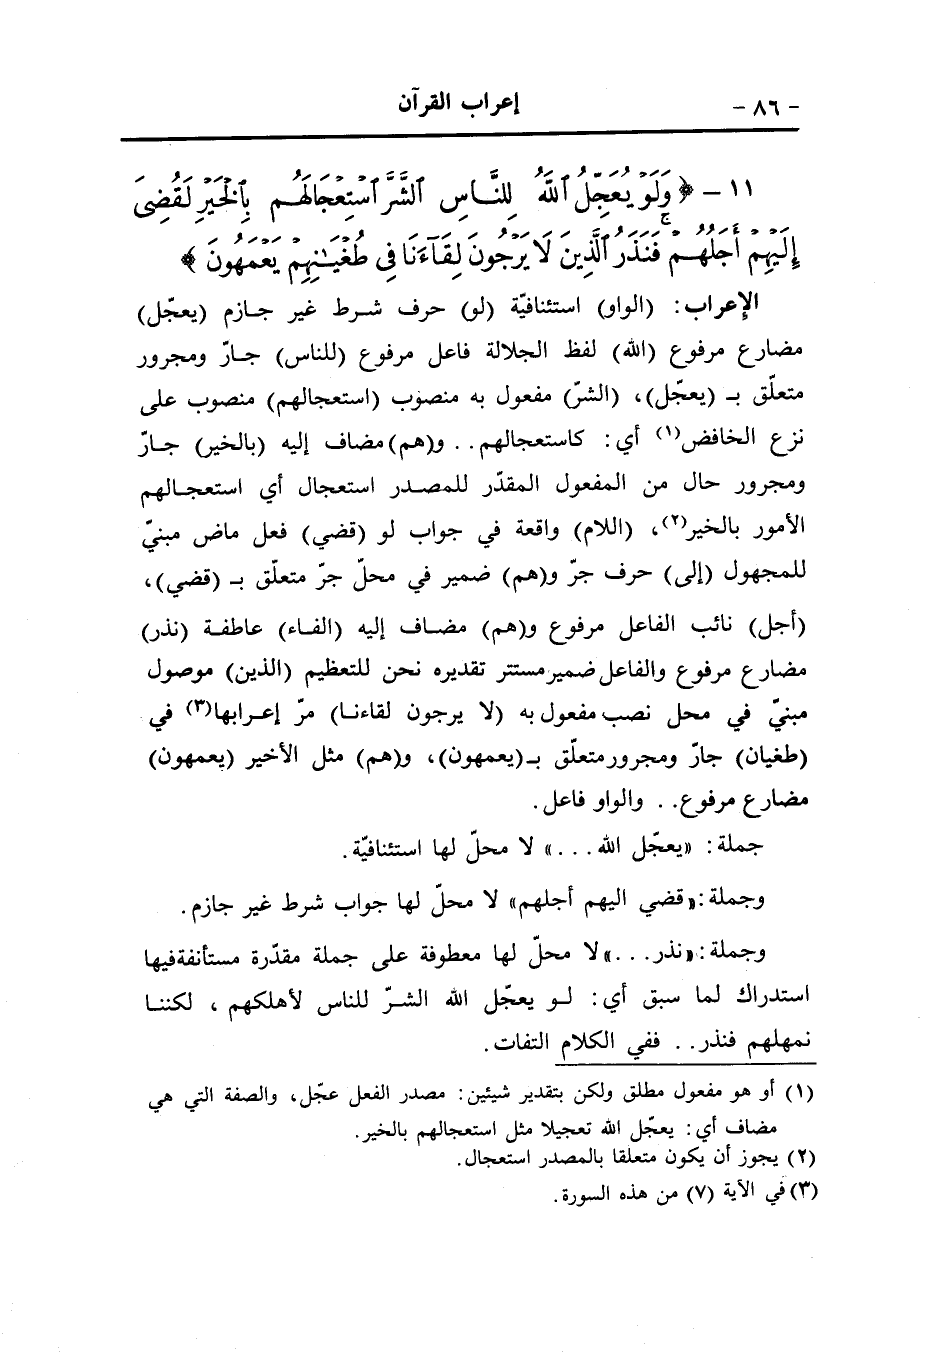 - ٨٦ -
إعراب القرآن
١١ - ﴿ وَلَوْ يُعَجِّلُ ٱللَّهُ لِلنَّاسِ ٱلشَّرَّ ٱسْتِعْجَالَهُم بِٱلْخَيْرِ لَقُضِىَ
إِلَيْهِمْ أَجَلُهُمْ ۖ فَنَذَرُ ٱلَّذِينَ لَا يَرْجُونَ لِقَآءَنَا فِى طُغْيَـٰنِهِمْ يَعْمَهُونَ ﴾
الإعراب: (الواو) استئنافيّة (لو) حرف شرط غير جازم (يعجّل)
مضارع مرفوع (الله) لفظ الجلالة فاعل مرفوع (للناس) جارّ ومجرور
متعلّق بـ (يعجّل)، (الشرّ) مفعول به منصوب (استعجالهم) منصوب على
نزع الخافض(١) أي: كاستعجالهم.. و(هم) مضاف إليه (بالخير) جارّ
ومجرور حال من المفعول المقدّر للمصدر استعجال أي استعجالهم
الأمور بالخير(٢)، (اللام) واقعة في جواب لو (قضي) فعل ماض مبنيّ
للمجهول (إلى) حرف جرّ و(هم) ضمير في محلّ جرّ متعلّق بـ (قضي)،
(أجل) نائب الفاعل مرفوع و(هم) مضاف إليه (الفاء) عاطفة (نذر)
مضارع مرفوع والفاعل ضمير مستتر تقديره نحن للتعظيم (الذين) موصول
مبنيّ في محل نصب مفعول به (لا يرجون لقاءنا) مرّ إعرابها(٣) في
(طغيان) جارّ ومجرور متعلّق بـ(يعمهون)، و(هم) مثل الأخير (يعمهون)
مضارع مرفوع.. والواو فاعل.
جملة: «يعجّل الله...» لا محلّ لها استئنافيّة.
وجملة: «قضي اليهم أجلهم» لا محلّ لها جواب شرط غير جازم.
وجملة: «نذر...» لا محلّ لها معطوفة على جملة مقدّرة مستأنفة فيها
استدراك لما سبق أي: لو يعجّل الله الشرّ للناس لأهلكهم، لكننا
نمهلهم فنذر.. ففي الكلام التفات.
(١) أو هو مفعول مطلق ولكن بتقدير شيئين: مصدر الفعل عجّل، والصفة التي هي
مضاف أي: يعجّل الله تعجيلا مثل استعجالهم بالخير.
(٢) يجوز أن يكون متعلقا بالمصدر استعجال.
(٣) في الآية (٧) من هذه السورة.